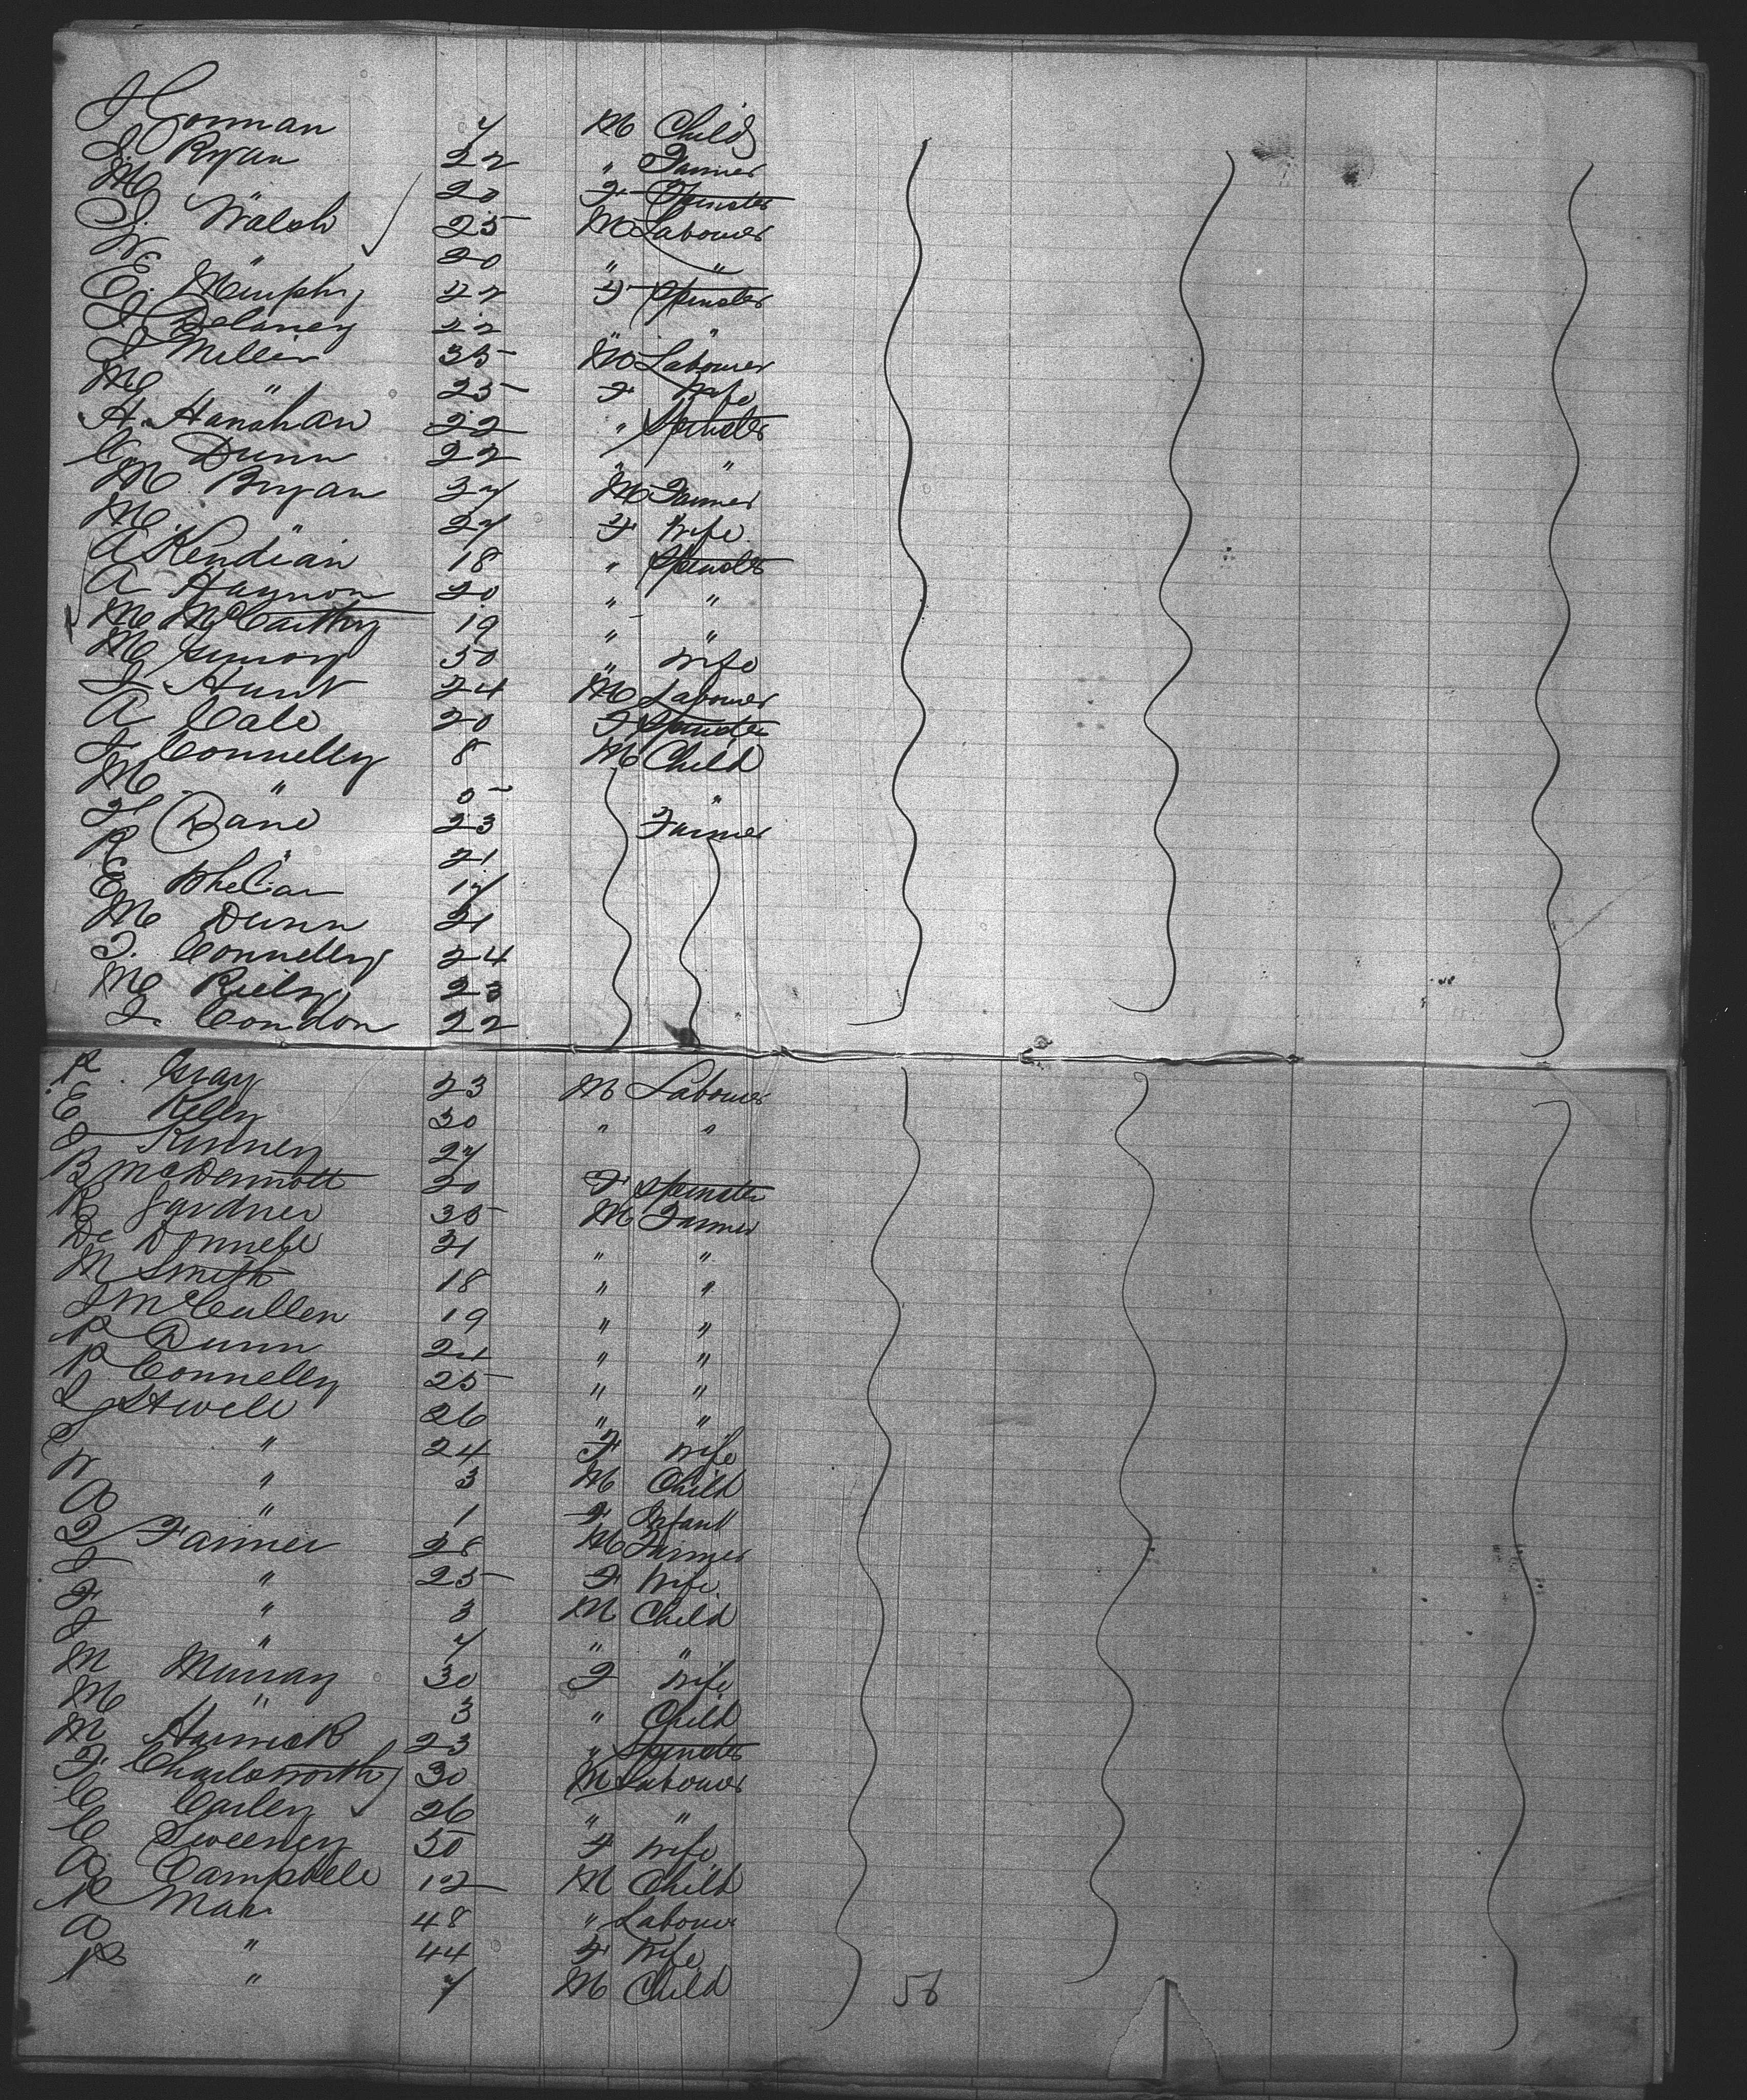 J Gorman 7 M Child
J. Ryan 22 " Farmer
M " 20 F Spinster
J. Walsh 25 M Labourer
W. " 20 " "
E. Murphy 22 F Spinster
J. Delaney 22 " "
J Miller 35 M Labourer
M " 25 F Wife
H. Hanahan 22 " Spinster
C. Dunn 22 " "
M Bryan 37 M Farmer
M " 27 F Wife
A 18 " Spinster
A 20 " "
M McCarthy 19 " "
M 30 " Wife
J Hunt 24 M Labourer
A Cale 20 F Spinster
J Connelly 8 M Child
M " 5 "
H Dane 23 Farmer
R " 21
E Whelan 17
M Dunn 21
T. Connelly 24
M Rieley 23
J. Condon 22
R Gray 23 M Labourer
E Kelly 30 " "
J Kinney 27
B McDermott 20 F Spinster
R Gardner 35 M Farmer
Dc Donnell 21 " "
M Smith 18 " "
J McCullen 19 " "
P Dunn 24 " "
P Connelly 25 " "
J Stwell 26 " "
S " 24 F Wife
W " 3 M Child
A " 1 F Infant
T Farmer 28 M Farmer
J " 25 F Wife
F " 3 M Child
J " 7 " "
M Murray 30 F Wife
M " 3 " Child
M Harrick 23 " Spinster
F. Charlesworth 30 M Labourer
C Curley 26 " "
C Sweeney 50 F Wife
A Campbell 12 M Child
P Mah 48 " Labourer
A " 44 F Wife
P " 7 M Child
56